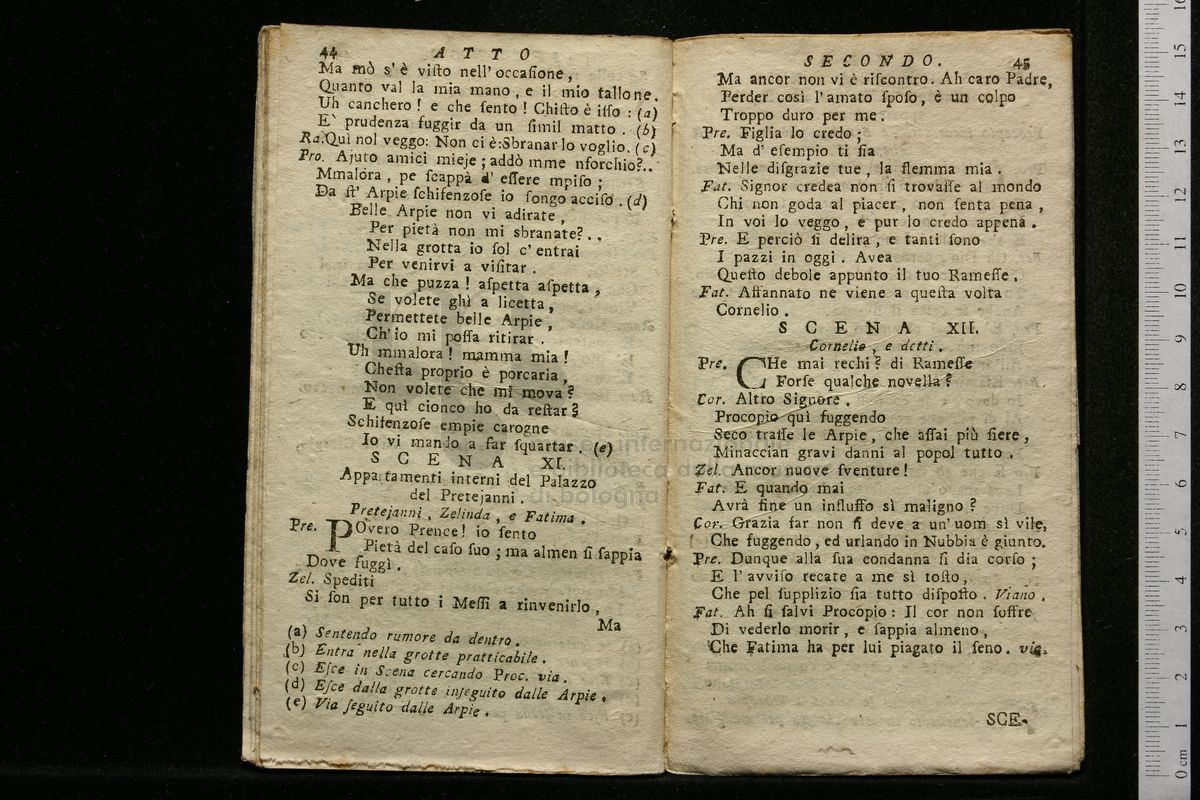 44 ATTO
Ma mò s'è viſto nell'occaſione,
Quanto val la mia mano, e il mio tallone.
Uh canchero! e che ſento! Chiſto è iſſo: (a)
E` prudenza fuggir da un ſimil matto. (b)
Ra. Quì nol veggo: Non ci è: Sbranarlo voglio. (c)
Pro. Ajuto amici mieje; addò mme nforchio?..
Mmalora, pe ſcappà d' eſſere mpiſo;
Da ſt' Arpie ſchifenzoſe io ſongo acciſo. (d)
Belle Arpie non vi adirate,
Per pietà non mi sbranate?..
Nella grotta io ſol c' entrai
Per venirvi a viſitar.
Ma che puzza! aſpetta aſpetta,
Se volete ghì a licetta,
Permettete belle Arpie,
Ch'io mi poſſa ritirar.
Uh mmalora! mamma mia!
Cheſta proprio è porcaria,
Non volete che mi mova?
E quì cionco ho da reſtar?
Schifenzoſe empie carogne
Io vi mando a far ſquartar. (e)
SCENA XI.
Appartamenti interni del Palazzo
del Pretejanni.
Pretejanni, Zelinda, e Fatima.
Pre. POvero Prence! io ſento
Pietà del caſo ſuo; ma almen ſi ſappia
Dove fuggì.
Zel. Spediti
Si ſon per tutto i Meſſi a rinvenirlo,
Ma
(a) Sentendo rumore da dentro.
(b) Entra nella grotte pratticabile.
(c) Eſce in Scena cercando Proc. via.
(d) Eſce dalla grotte inſeguito dalle Arpie.
(e) Via ſeguito dalle Arpie.
SECONDO. 45
Ma ancor non vi è riſcontro. Ah caro Padre,
Perder così l'amato ſpoſo, è un colpo
Troppo duro per me.
Pre. Figlia lo credo;
Ma d' eſempio ti ſia
Nelle diſgrazie tue, la flemma mia.
Fat. Signor credea non ſi trovaſſe al mondo
Chi non goda al piacer, non ſenta pena,
In voi lo veggo, e pur lo credo appena.
Pre. E perciò ſi delira, e tanti ſono
I pazzi in oggi. Avea
Queſto debole appunto il tuo Rameſſe.
Fat. Affannato ne viene a queſta volta
Cornelio.
SCENA XII.
Cornelio, e detti.
Pre. CHe mai rechi? di Rameſſe
Forſe qualche novella?
Cor. Altro Signore.
Procopio quì fuggendo
Seco traſſe le Arpie, che aſſai più fiere,
Minaccian gravi danni al popol tutto.
Zel. Ancor nuove ſventure!
Fat. E quando mai
Avrà fine un influſſo sì maligno?
Cor. Grazia far non ſi deve a un'uom sì vile,
Che fuggendo, ed urlando in Nubbia è giunto.
Pre. Dunque alla ſua condanna ſi dia corſo;
E l'avviſo recate a me sì toſto,
Che pel ſupplizio ſia tutto diſpoſto. Viano.
Fat. Ah ſi ſalvi Procopio: Il cor non ſoffre
Di vederlo morir, e ſappia almeno,
Che Fatima ha per lui piagato il ſeno. via.
SCE-